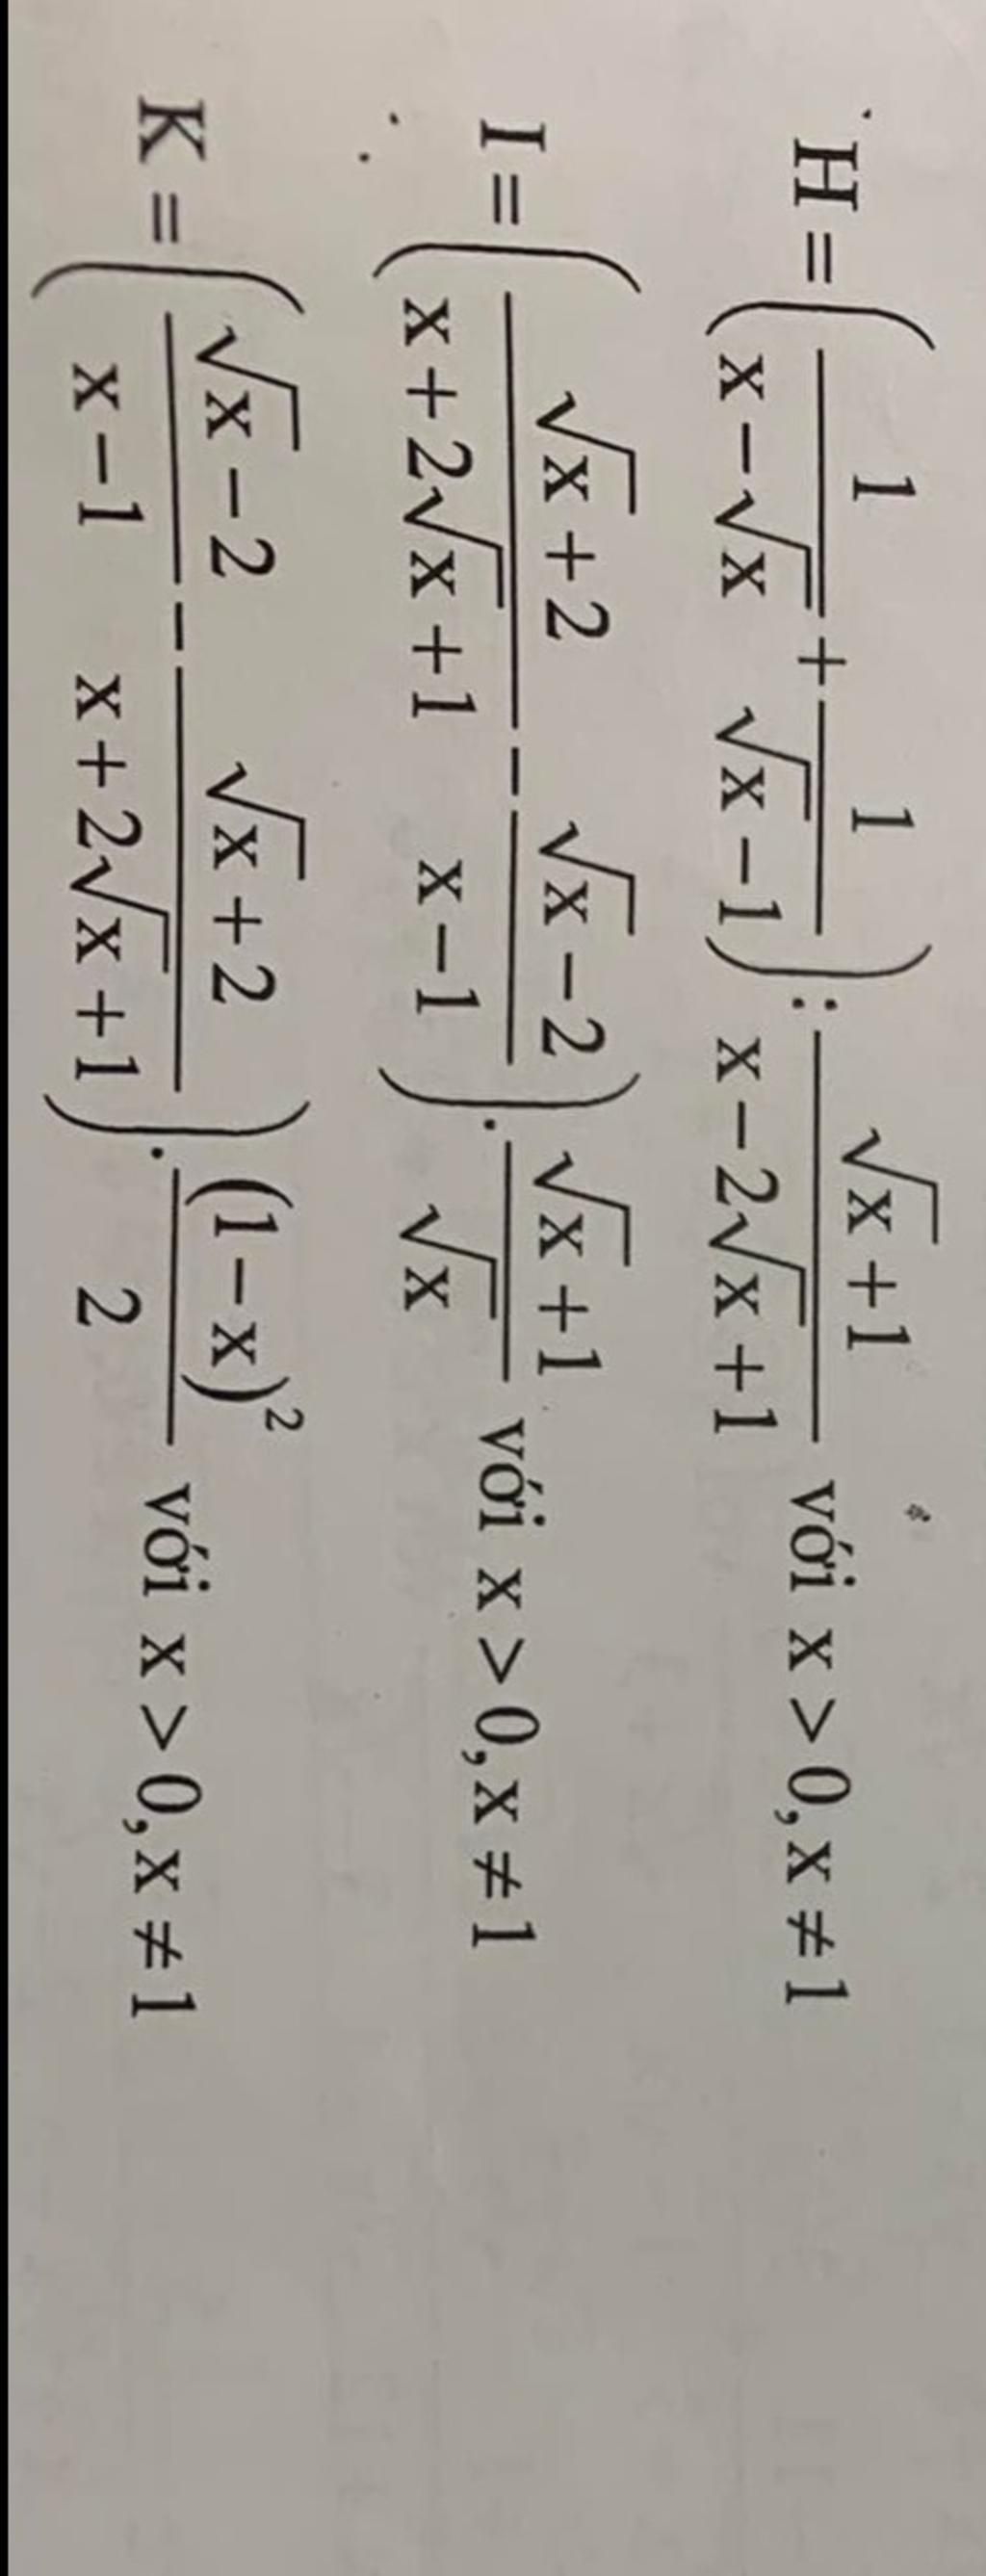 H = (1/(x − √x) + 1/(√x − 1)) : (√x + 1)/(x − 2√x + 1) với x > 0, x ≠ 1
I = ((√x + 2)/(x + 2√x + 1) − (√x − 2)/(x − 1)) . (√x + 1)/√x với x > 0, x ≠ 1
K = ((√x − 2)/(x − 1) − (√x + 2)/(x + 2√x + 1)) . (1 − x)²/2 với x > 0, x ≠ 1